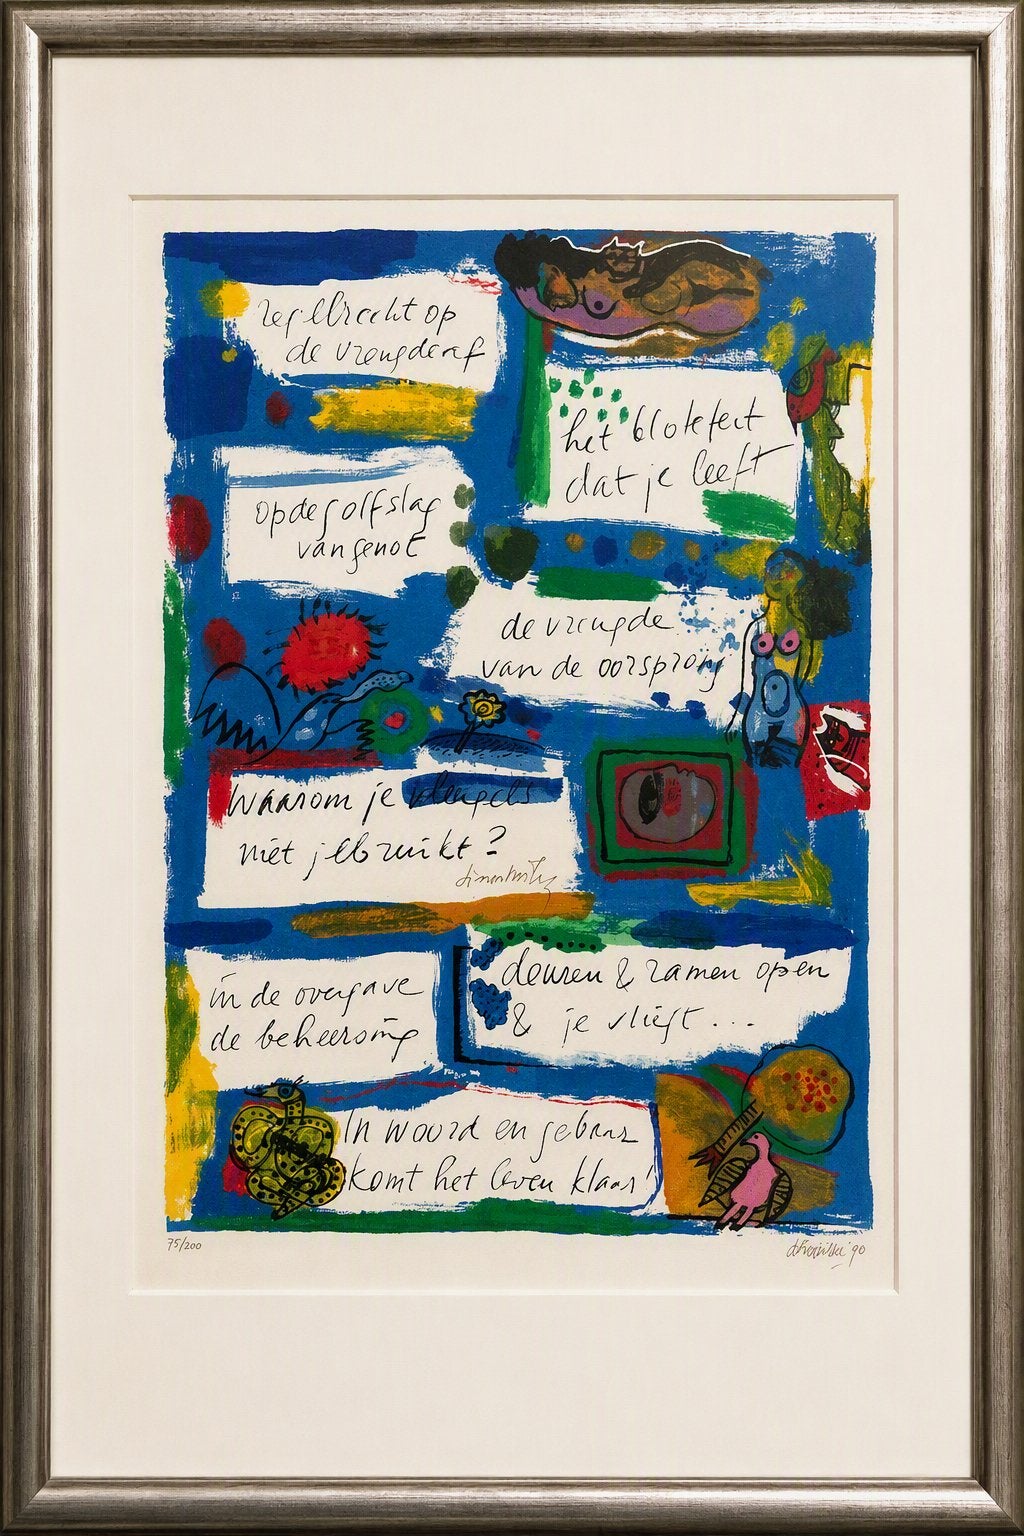 regelrecht op
de vreugde af
het blote feit
dat je leeft
op de golfslag
van genot
de vreugde
van de oorsprong
waarom je vleugels
niet gebruikt?
in de overgave
de beheersing
deuren & ramen open
& je vliegt...
In woord en gebaar
komt het leven klaar!
75/200
'90